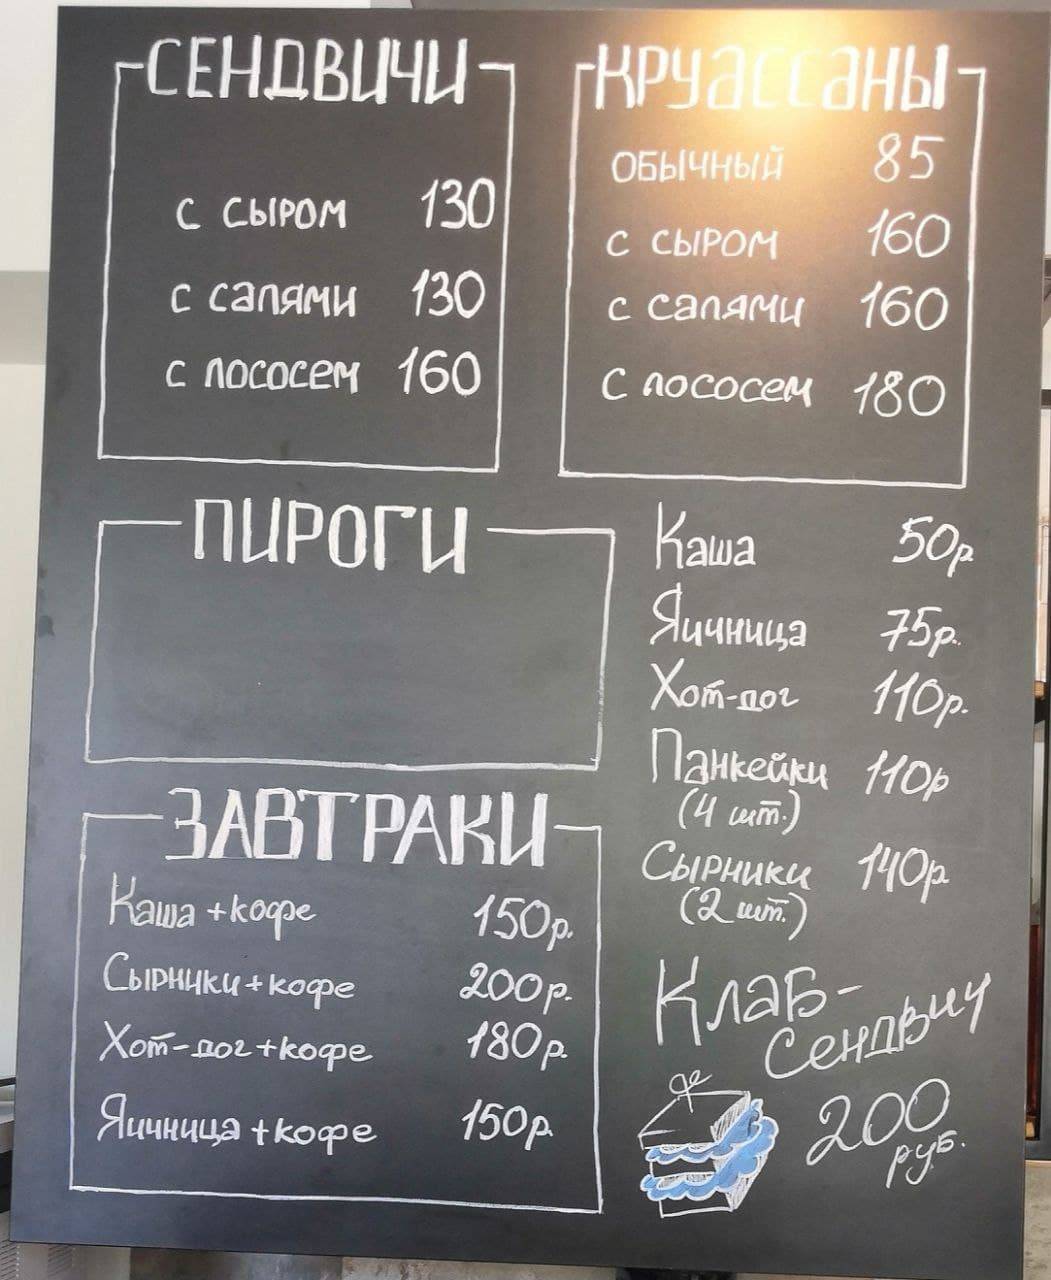 СЕНДВИЧИ
с сыром 130
с салями 130
с лососем 160
КРУАССАНЫ
ОБЫЧНЫЙ 85
с сыром 160
с салями 160
с лососем 180
ПИРОГИ
Каша 50р
Яичница 75р.
Хот-дог 110р.
Панкейки 110р
(4 шт.)
Сырники 140р.
(2 шт.)
ЗАВТРАКИ
Каша+кофе 150р.
Сырники+кофе 200р.
Хот-дог+кофе 180р.
Яичница+кофе 150р.
Клаб-
сендвич
200
руб.